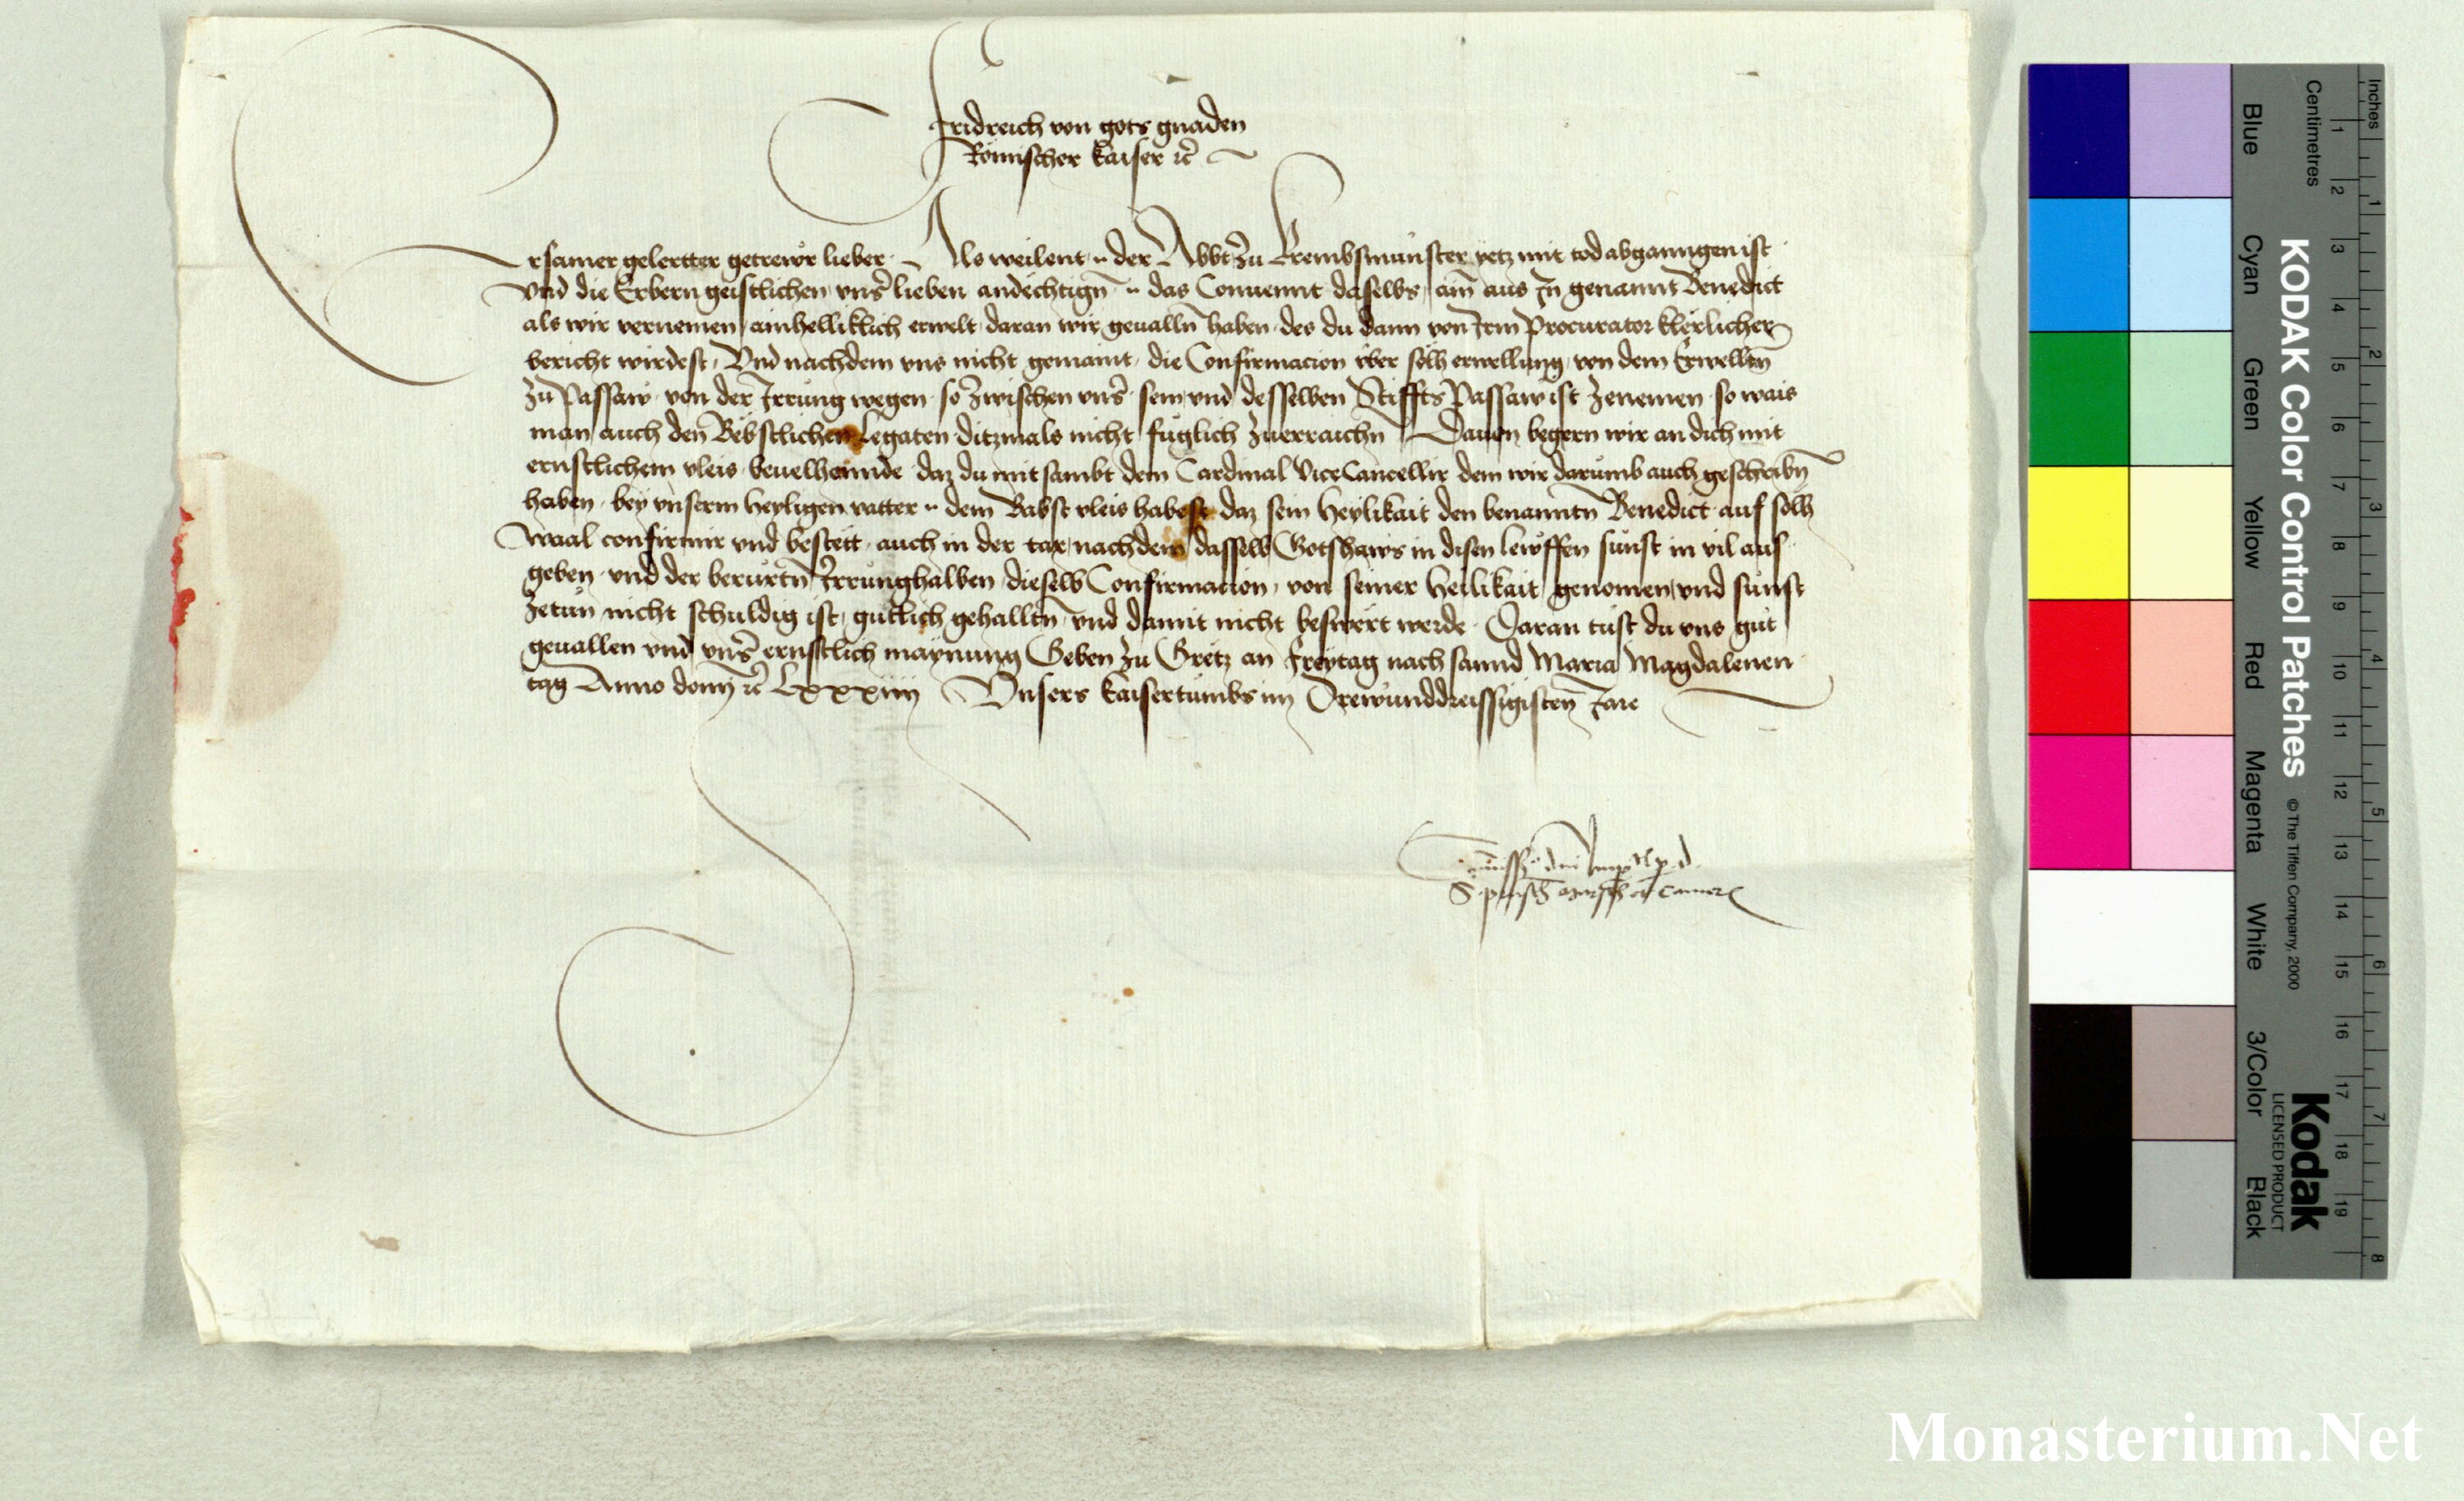 Fridreich von gots gnaden
Römischer kaiser etc
Ersamer gelertter getrewr lieber. Als weilent .. der Abbt zu Krembsmünster yetz mit tod abganngen ist
Vnd die Erbern geistlichen vnser lieben andechtign .. das Conuennt daselbs, ain aus In genannt Benedict
als wir vernemen ainhelliklich erwelt, daran wir geualln haben, des du dann von Irm Procurator klerlicher
bericht wirdest, Vnd nachdem vns nicht gemaint, die Confirmacion vber sölh erwellung, von dem Erwellten
zu Passaw, von der Irrung wegen, so zwischen vnser, sein vnd desselben Stiffts Passaw ist zenemen, so wais
man auch den Bebstlichen Legaten ditzmals nicht fuglich zuerraichn, Dauon begern wir an dich mit
ernstlichem vleis beuelhennde, daz du mitsambt dem Cardinal ViceCancellir dem wir darumb auch geschribn
haben, bey vnserm heyligen vatter .. dem Babst vleis habest, daz sein heylikait den benanntn Benedict auf sölh
Waal confirmir vnd bestett, auch in der tax, nachdem dasselb Gotshaws in disen lewffen sunst in vil aus
geben, vnd der berurtn Irrunghalben, dieselb Confirmacion, von seiner heilikait genomen, vnd sunst
zetun nicht schuldig ist, gutlich gehalltn, vnd damit nicht beswert werde. Daran tust du vns gut
geuallen vnd vnser ernstlich maynung Geben zu Gretz an freytag nach sannd Maria Magdalenen
tag Anno domini etc Lxxxiiii Vnsers kaisertumbs im Drewunddreissigisten Jare